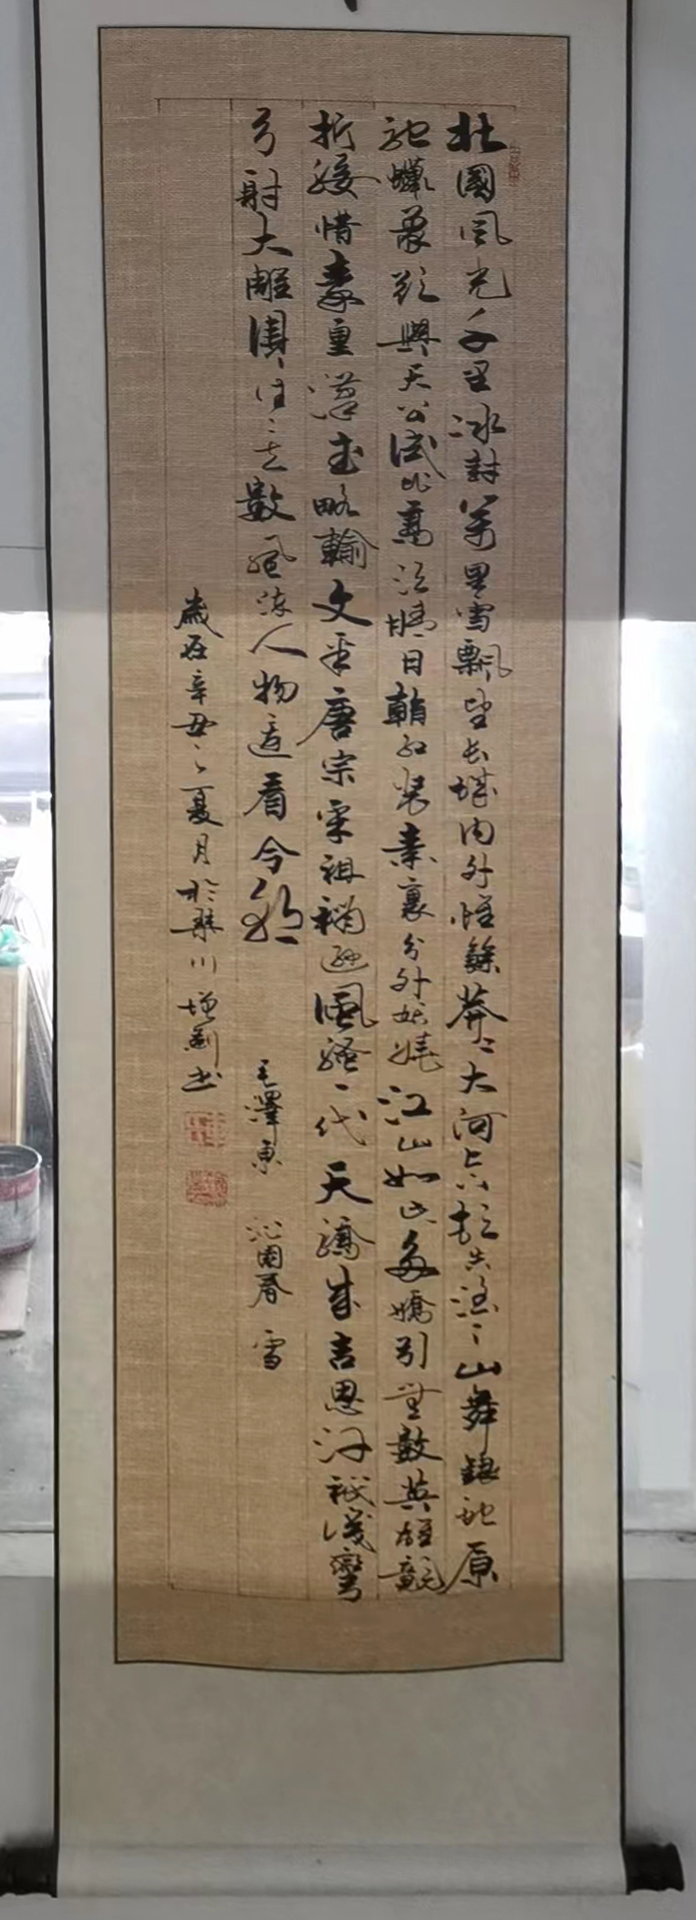 北國風光千里冰封萬里雪飄望長城内外惟餘莽〻大河上下頓失滔〻山舞銀蛇原
馳蠟象欲與天公試比高須晴日紅裝素裹分外妖嬈江山如此多嬌引無數英雄競
折腰惜秦皇漢武略輸文采唐宗宋祖稍遜風騷一代天驕成吉思汗祇識彎
弓射大雕俱往矣數風流人物還看今朝 毛澤東 沁園春 雪
歲在辛丑之夏月於琴川增剛書